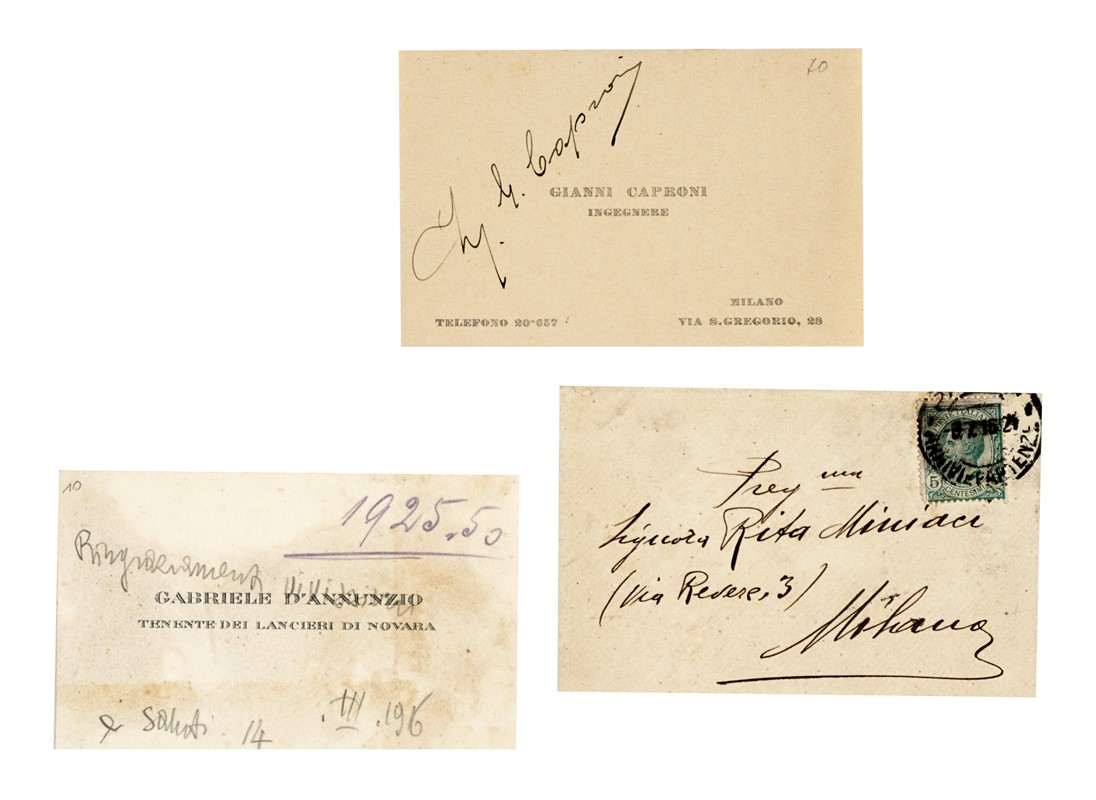 70
Ing. G. Caproni
GIANNI CAPRONI
INGEGNERE
MILANO
TELEFONO 20-657
VIA S.GREGORIO, 28
10
1925.50
Ringraziamenti vivissimi
GABRIELE D'ANNUNZIO
TENENTE DEI LANCIERI DI NOVARA
e saluti. 14 .III.196
POSTE ITALIANE
5
CENTESIMI
ARRIVI E PARTENZE
Preg ma
Signora Rita Miniaci
(Via Revere, 3)
Milano